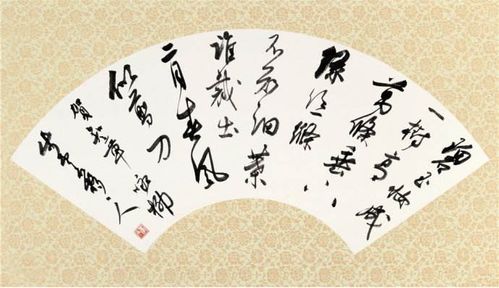 碧玉妝成
一樹高
萬條垂下
綠絲絛
不知細葉
誰裁出
二月春風
似剪刀 詠柳
賀知章